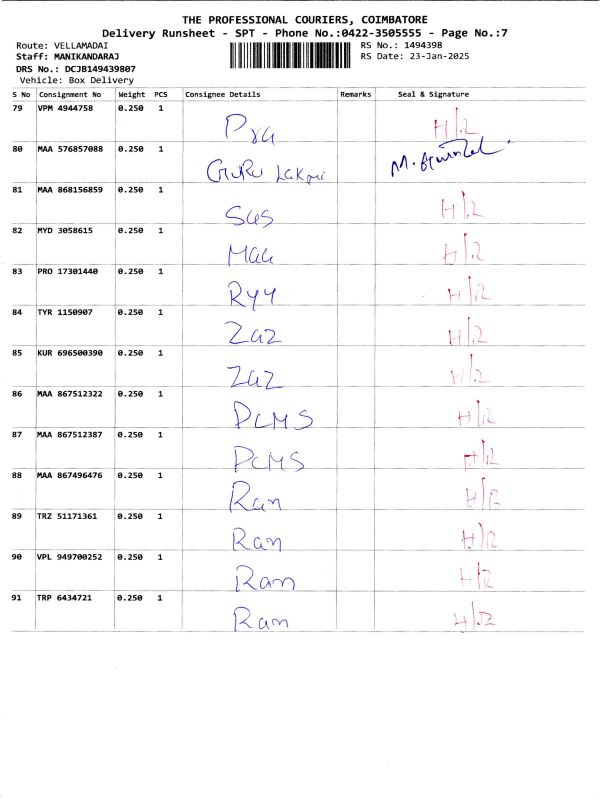 THE PROFESSIONAL COURIERS, COIMBATORE
Delivery Runsheet - SPT - Phone No.:0422-3505555 - Page No.:7
Route: VELLAMADAI RS No.: 1494398
Staff: MANIKANDARAJ RS Date: 23-Jan-2025
DRS No.: DCJB149439807
Vehicle: Box Delivery
S No Consignment No Weight PCS Consignee Details Remarks Seal & Signature
79 VPM 4944758 0.250 1 Pra H/12
80 MAA 576857088 0.250 1 GURU Lakmi
81 MAA 868156859 0.250 1 Sus H/12
82 MYD 3058615 0.250 1 Maa H/12
83 PRO 17301440 0.250 1 Ryy H/12
84 TYR 1150907 0.250 1 Zaz H/12
85 KUR 696500390 0.250 1 Zaz H/12
86 MAA 867512322 0.250 1 PCMS H/12
87 MAA 867512387 0.250 1 PCMS H/12
88 MAA 867496476 0.250 1 Ram H/12
89 TRZ 51171361 0.250 1 Ram H/12
90 VPL 949700252 0.250 1 Ram H/12
91 TRP 6434721 0.250 1 Ram H/12